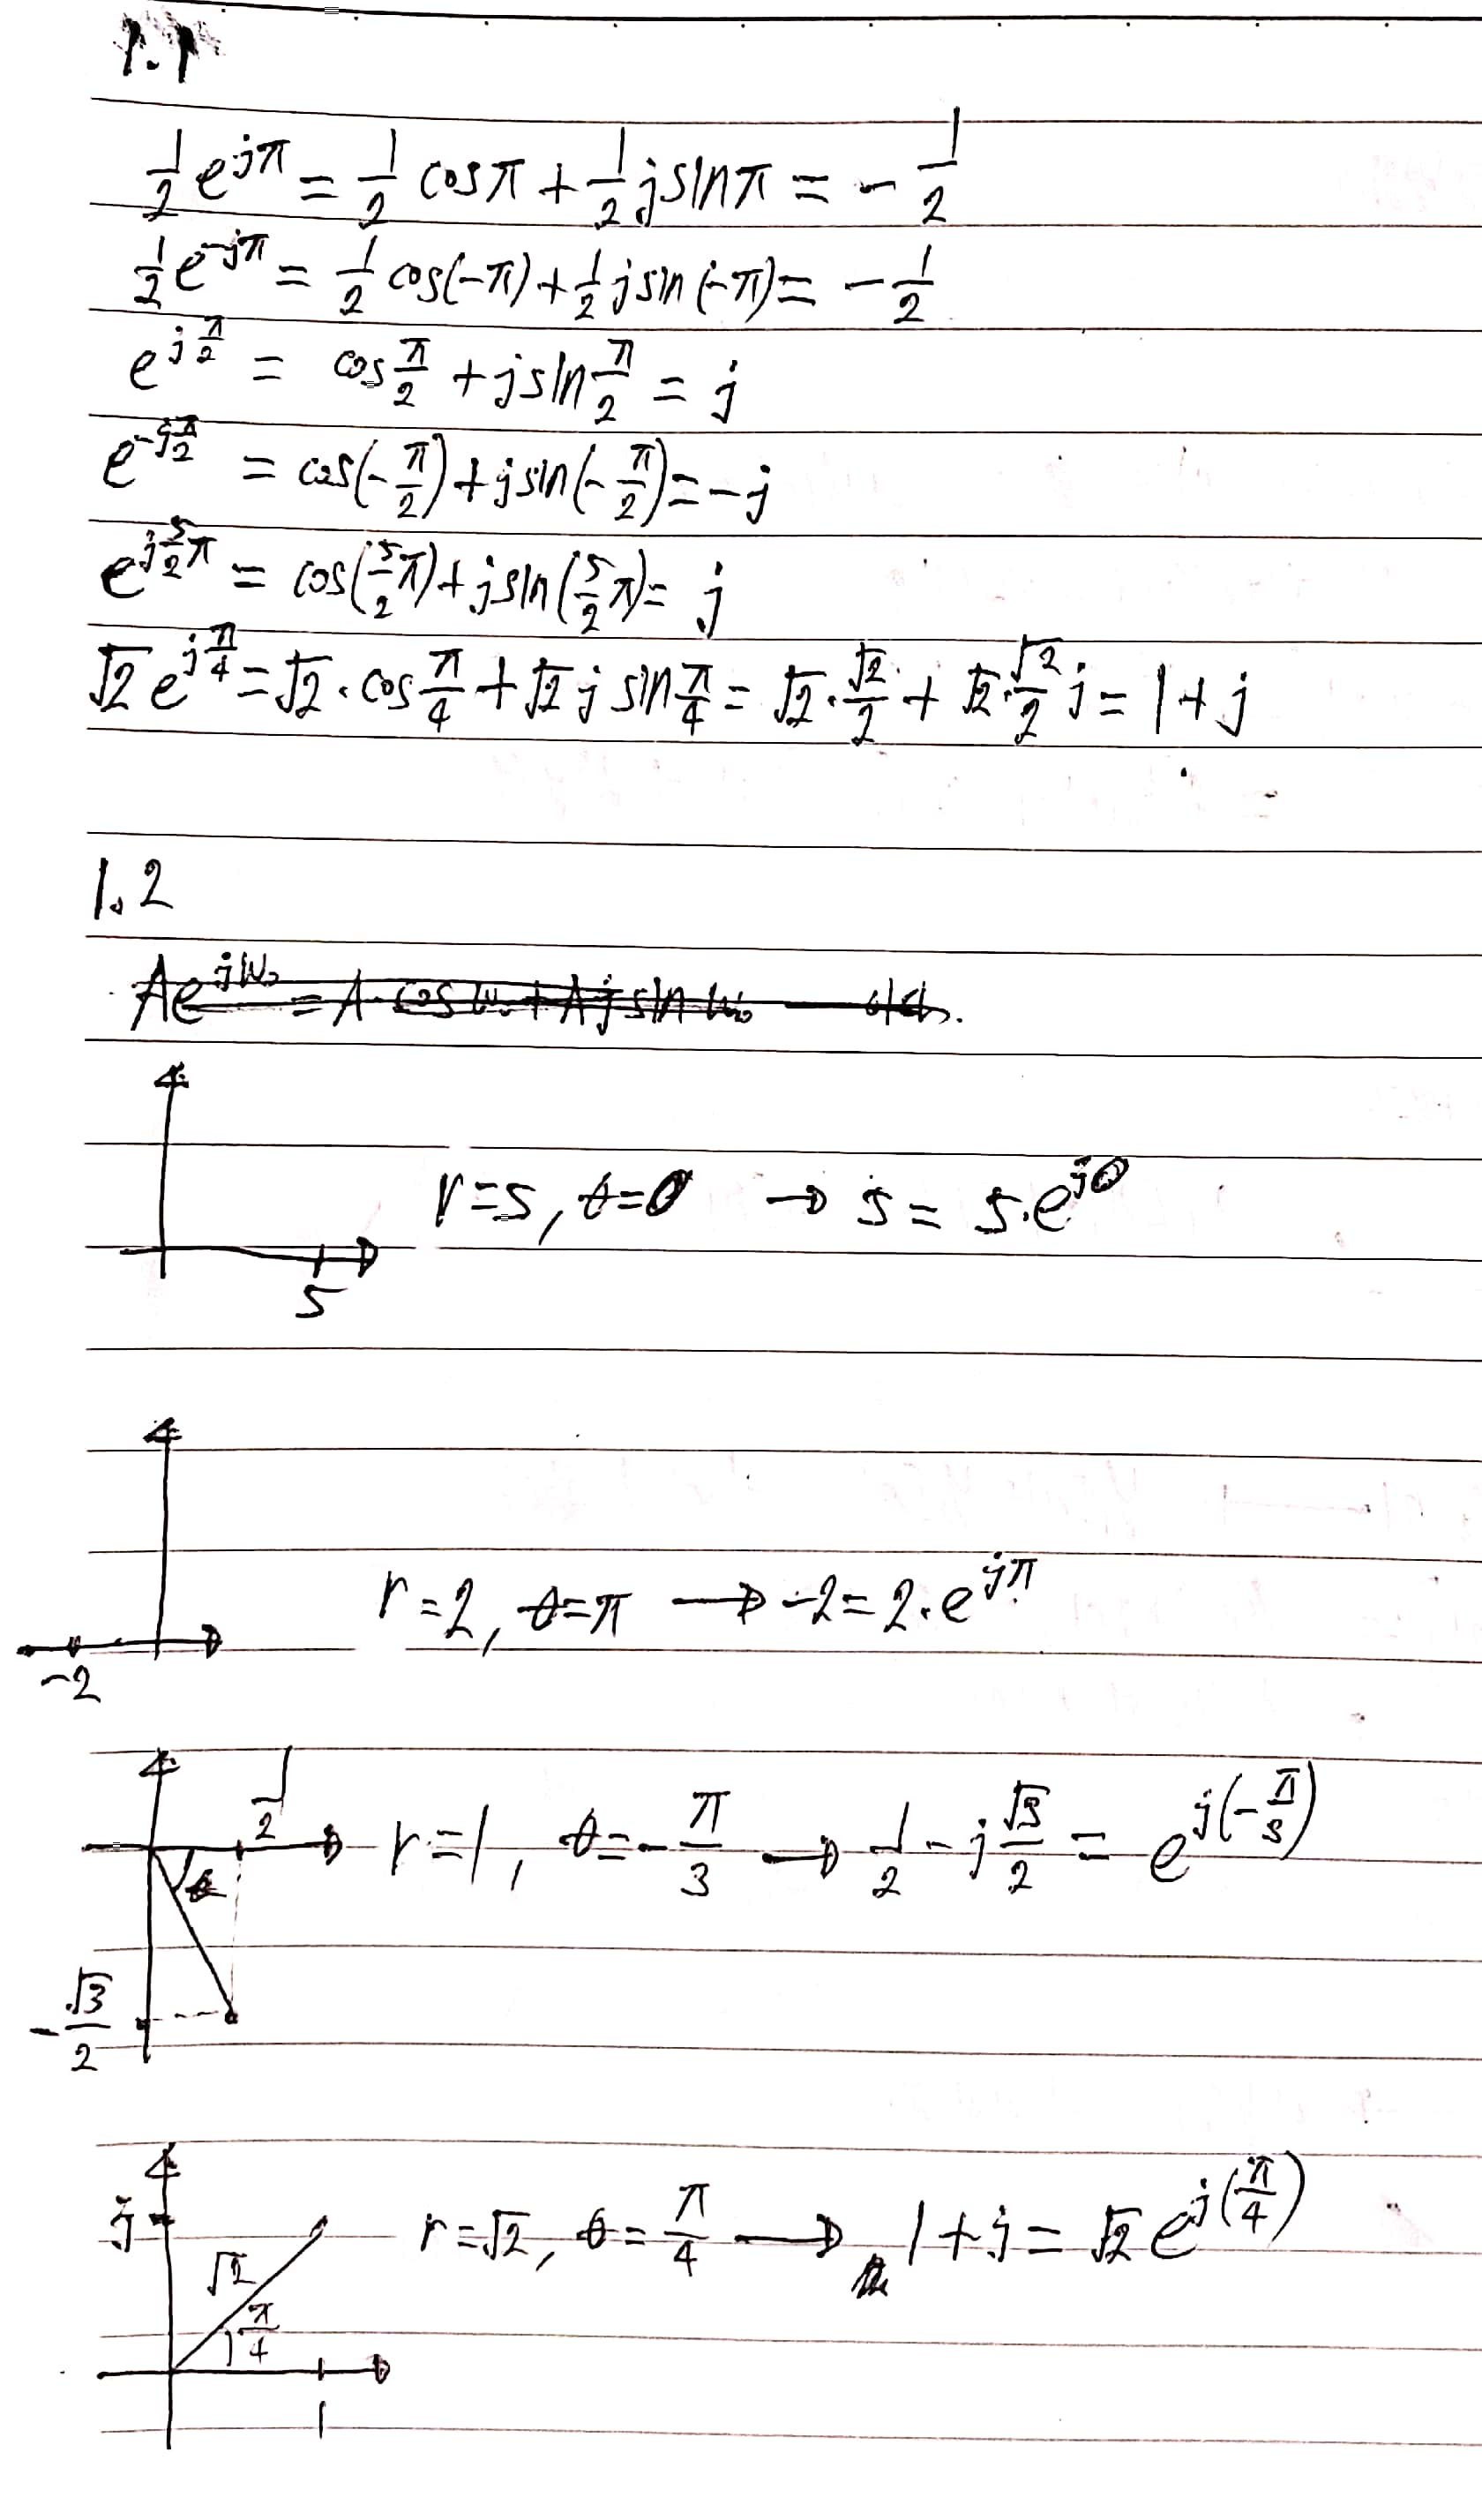 1.1
1/2 e^{jπ} = 1/2 cosπ + 1/2 jsinπ = - 1/2
1/2 e^{-jπ} = 1/2 cos(-π) + 1/2 jsin(-π) = - 1/2
e^{j π/2} = cos π/2 + jsin π/2 = j
e^{-j π/2} = cos(- π/2) + jsin(- π/2) = -j
e^{j 5/2 π} = cos(5/2 π) + jsin(5/2 π) = j
√2 e^{j π/4} = √2 · cos π/4 + √2 j sin π/4 = √2 · √2/2 + √2 · √2/2 j = 1 + j
1.2
r=5, θ=0 → 5 = 5·e^{j0}
5
r=2, θ=π → -2 = 2·e^{jπ}
-2
1/2
r=1, θ=- π/3 → 1/2 - j √3/2 = e^{j(- π/3)}
θ
- √3/2
j
r=√2, θ= π/4 → 1+j = √2 e^{j(π/4)}
√2
π/4
1